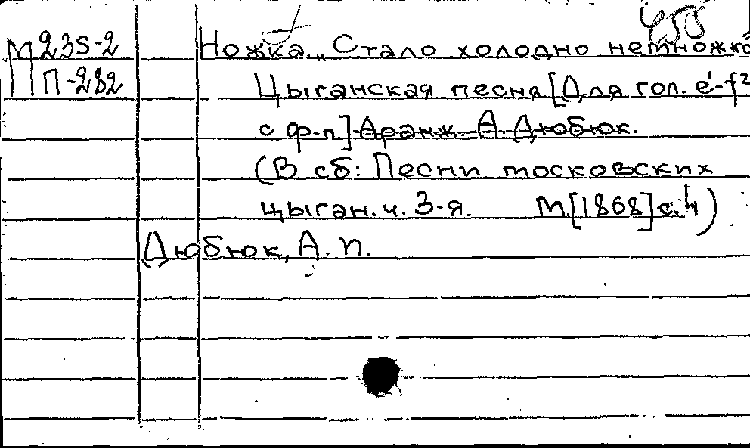 455
М 235-2 Ножка. „Стало холодно немножко
П-282 Цыганская песня [Для гол. e¹-f²
с ф-п] Аранж. А. Дюбюк.
(В сб: Песни московских
цыган. ч. 3-я. М. [1868] с. 4)
Дюбюк, А. И.